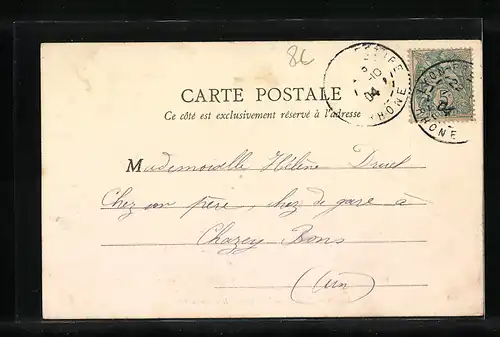 86
CARTE POSTALE
Ce côté est exclusivement réservé à l'adresse
RHONE
04
RHONE
04
Mademoiselle Hélène Druet
Chez son père, chez de gare à
Chazey Bons
(Ain)